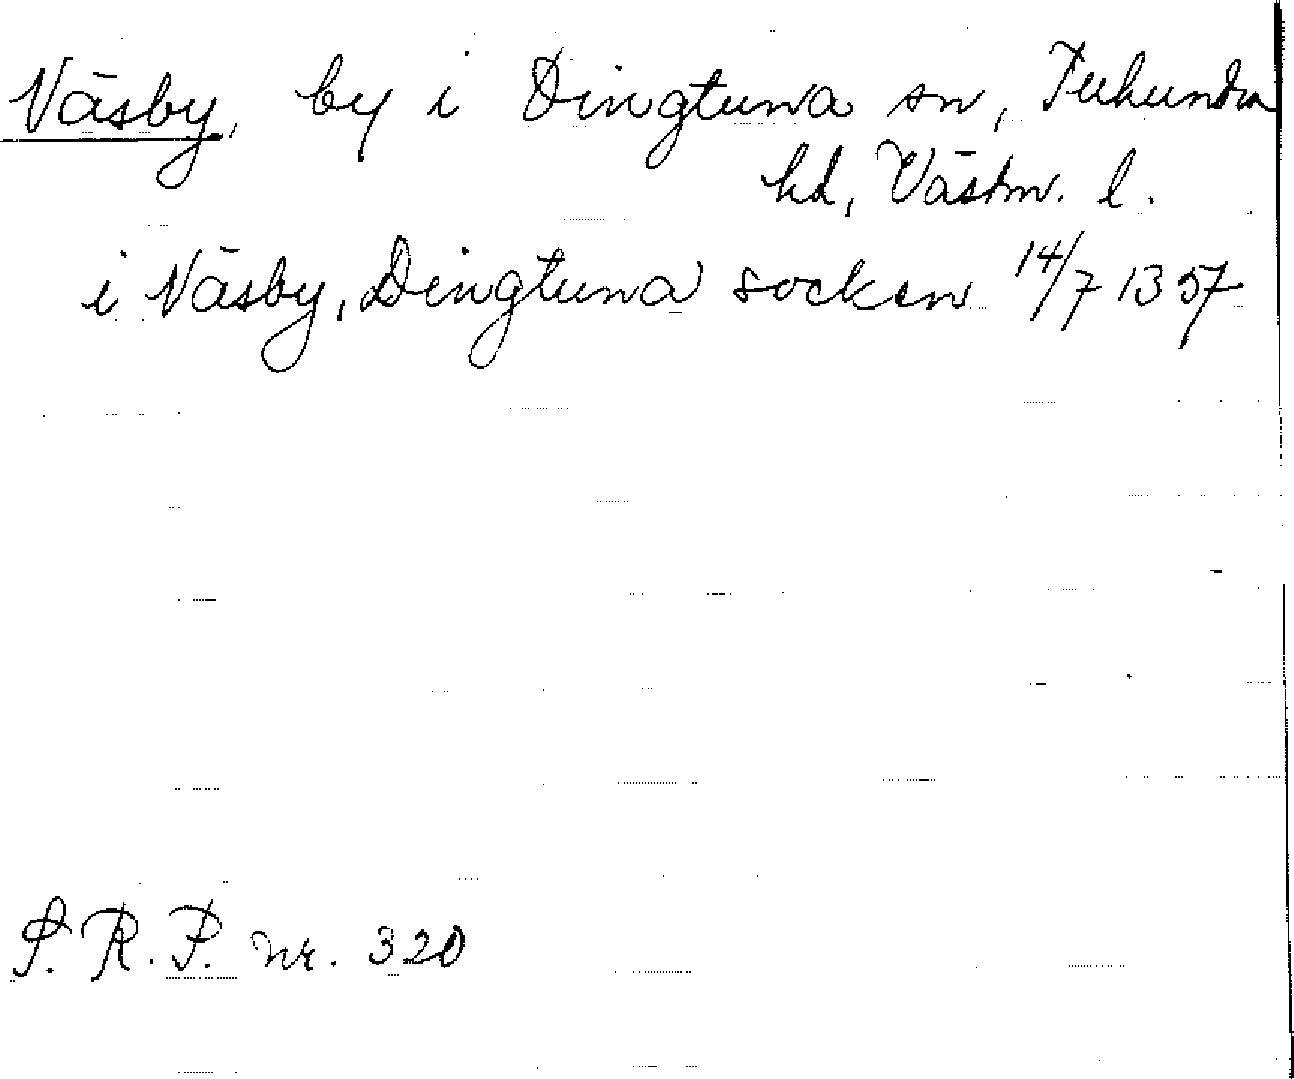 Väsby, by i Dingtuna sn, Tuhundra
hd, Västm. l.
i Väsby, Dingtuna socken 14/7 1357
S. R. P. nr. 320